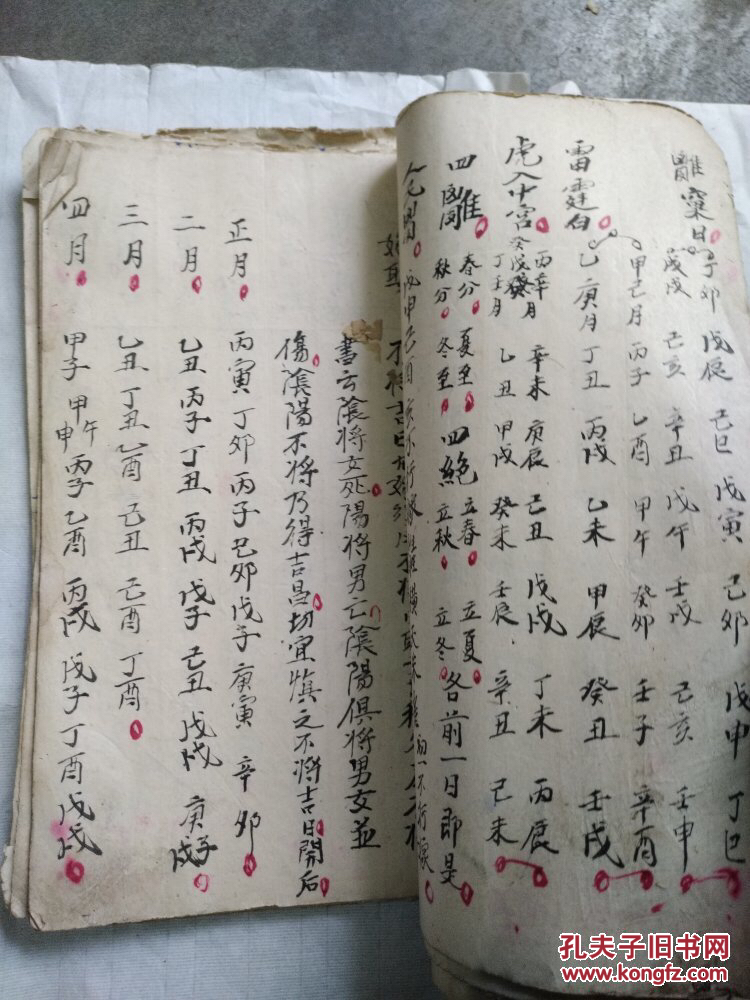 離窠日 丁卯 戊辰 己巳 戊寅 己卯 戊申 丁巳
戊戌 己亥 辛丑 戊午 壬戌 己亥 壬申
雷霆白 甲己月 丙子 乙酉 甲午 癸卯 壬子 辛酉
乙庚月 丁丑 丙戌 乙未 甲辰 癸丑 壬戌
虎入中宮 丙辛月 辛未 庚辰 己丑 戊戌 丁未 丙辰
丁壬月 乙丑 甲戌 癸未 壬辰 辛丑 己未
四離 春分 夏至 秋分 冬至 四絕 立春 立夏 立秋 立冬 各前一日即是
書云陰將女死陽將男亡陰陽俱將男女並
傷陰陽不將乃得吉昌切宜慎之不將吉日開后
正月 丙寅 丁卯 丙子 己卯 戊子 庚寅 辛卯
二月 乙丑 丙子 丁丑 丙戌 戊子 己丑 戊戌 庚子
三月 乙丑 丁丑 乙酉 己丑 己酉 丁酉
四月 甲子 甲午 甲申 丙子 乙酉 丙戌 戊子 丁酉 戊戌
孔夫子旧书网
www.kongfz.com